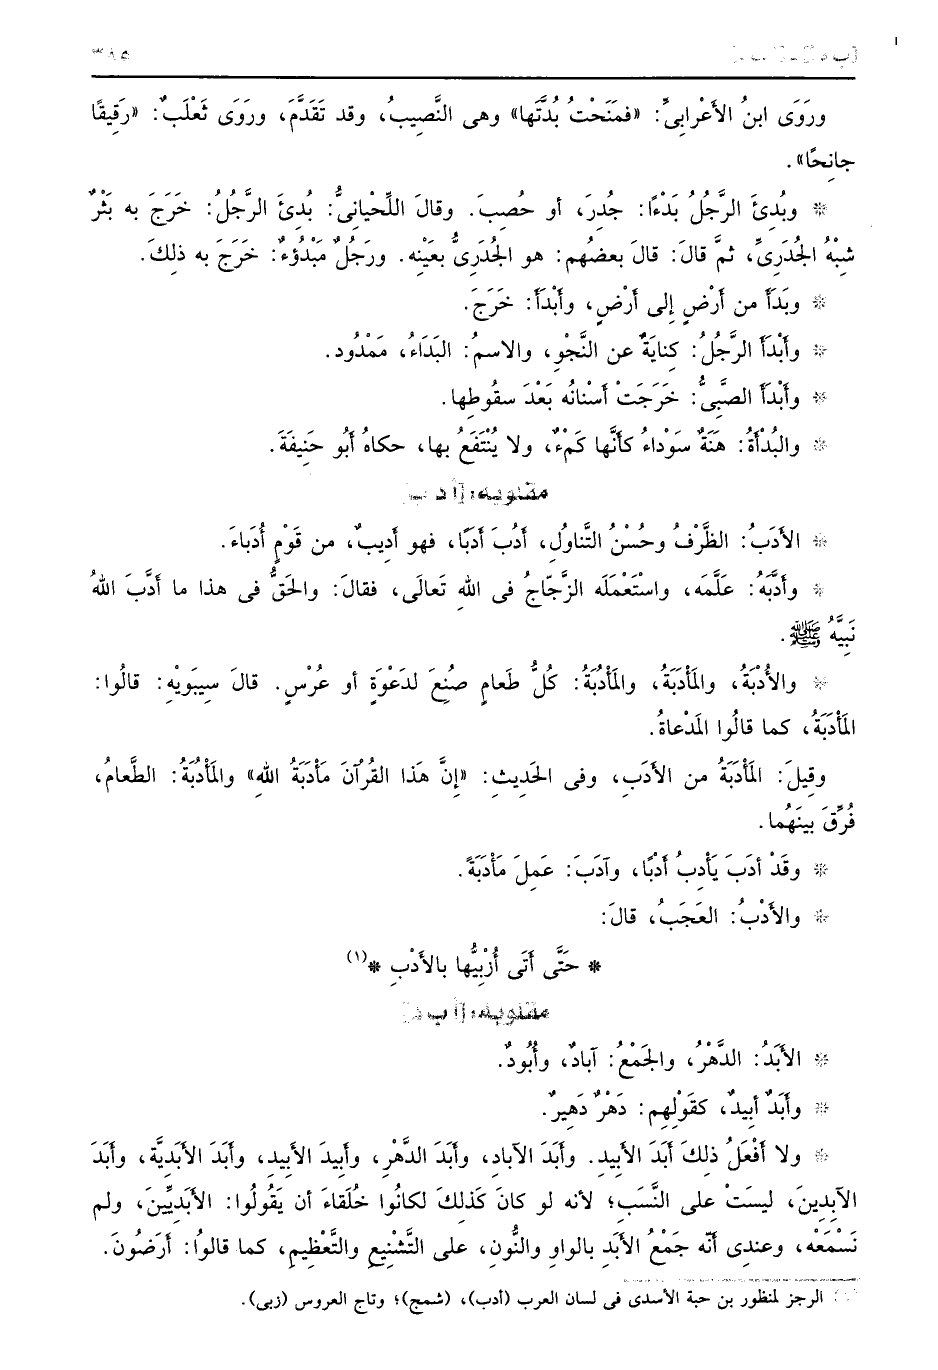 ٣٨٥
ورَوَى ابنُ الأَعْرابىِّ: «فمَنَحْتُ بُدَّتَها» وهى النَّصِيبُ، وقد تَقَدَّمَ، وروَى ثَعْلَبٌ: «رَقِيقًا
جانِحًا».
* وبُدِئَ الرَّجُلُ بَدْءًا: جُدِرَ، أو حُصِبَ. وقالَ اللِّحْيانىُّ: بُدِئَ الرَّجُلُ: خَرَجَ به بَثْرٌ
شِبْهُ الجُدَرِىِّ، ثمَّ قالَ: قالَ بعضُهم: هو الجُدَرِىُّ بعَيْنِه. ورَجُلٌ مَبْدُوْءٌ: خَرَجَ به ذلِكَ.
* وبَدَأَ من أَرْضٍ إلى أَرْضٍ، وأَبْدَأَ: خَرَجَ.
* وأَبْدَأَ الرَّجُلُ: كِنايَةٌ عن النَّجْوِ، والاسمُ: البَدَاءُ، مَمْدُود.
* وأَبْدَأَ الصَّبِىُّ: خَرَجَتْ أَسْنانُه بَعْدَ سقُوطِها.
* والبُدْأَةُ: هَنَةٌ سَوْداءُ كأَنَّها كَمْءٌ، ولا يُنْتَفَعُ بها، حكاهُ أَبُو حَنِيفَةَ.
مقلوبه: [أ د ب]
* الأَدَبُ: الظَّرْفُ وحُسْنُ التَّناوُلِ، أَدُبَ أَدَبًا، فهو أَدِيبٌ، من قَوْمٍ أُدَباءَ.
* وأَدَّبَهُ: عَلَّمَه، واسْتَعْمَلَه الزَّجّاجُ فى اللهِ تَعالَى، فقالَ: والحَقُّ فى هذا ما أَدَّبَ اللهُ
نَبِيَّهُ ﷺ.
* والأُدْبَةُ، والمَأْدَبَةُ، والمَأْدُبَةُ: كُلُّ طَعامٍ صُنِعَ لدَعْوَةٍ أو عُرْسٍ. قالَ سِيبَويْهِ: قالُوا:
المَأْدَبَةُ، كما قالُوا المَدْعاةُ.
وقِيلَ: المَأْدَبَةُ من الأَدَبِ، وفى الحَدِيثِ: «إنَّ هَذا القُرآنَ مَأْدَبَةُ اللهِ» والمَأْدُبَةُ: الطَّعامُ،
فُرِّقَ بينَهُما.
* وقَدْ أدَبَ يَأْدِبُ أَدْبًا، وآدَبَ: عَمِلَ مَأْدَبَةً.
* والأَدْبُ: العَجَبُ، قالَ:
* حَتَّى أَتَى أُزْبِيُّها بالأَدْبِ *(١)
مقلوبه: [أ ب د]
* الأَبَدُ: الدَّهْرُ، والجَمْعُ: آبادٌ، وأُبُودٌ.
* وأَبَدٌ أَبِيدٌ، كقَوْلِهِم: دَهْرٌ دَهِيرٌ.
* ولا أَفْعَلُ ذلِكَ أَبَدَ الأَبِيدِ. وأَبَدَ الآبادِ، وأَبَدَ الدَّهْرِ، وأَبِيدَ الأَبِيدِ، وأَبَدَ الأَبَدِيَّةِ، وأَبَدَ
الآبِدِينَ، ليسَتْ على النَّسَبِ؛ لأنه لو كانَ كَذلِكَ لكانُوا خُلَقاءَ أن يَقُولُوا: الأَبَدِيِّينَ، ولم
نَسْمَعْه، وعندِى أنّه جَمْعُ الأَبَدِ بالواوِ والنُّونِ، على التَّشْنِيعِ والتَّعْظِيمِ، كما قالُوا: أَرَضُونَ.
(١) الرجز لمنظور بن حبة الأسدى فى لسان العرب (أدب)، (شمج)؛ وتاج العروس (زبى).